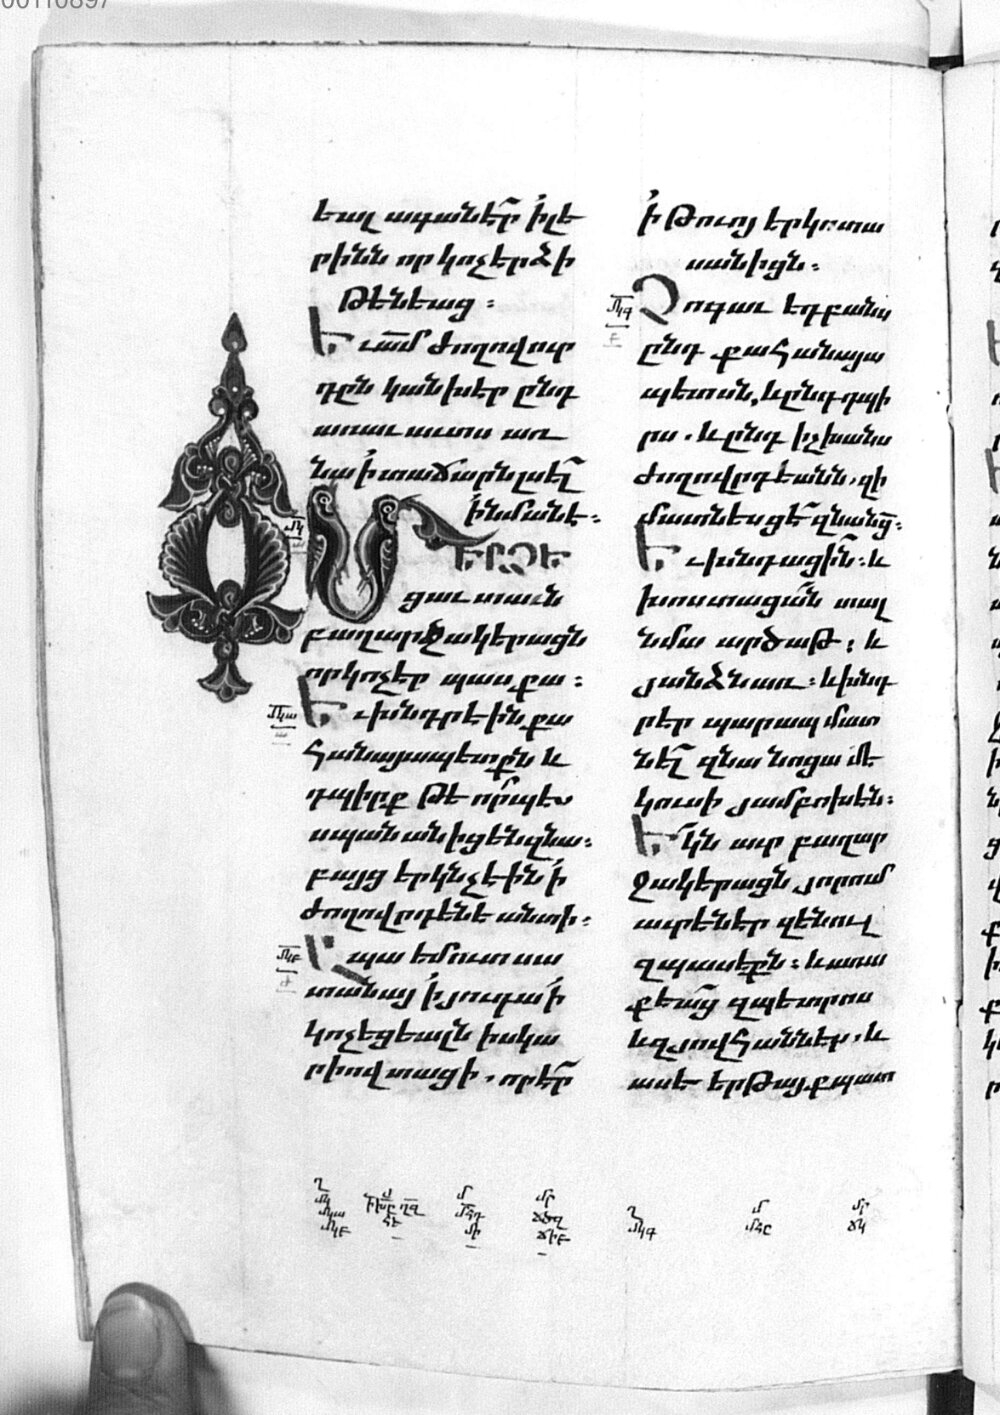 00110897
եալ ագանէր՛ ի՛լե
րինն որ կոչէր ձի
թենեաց :
Եւ ա՛մ ժողովուր
դըն կանխէր ընդ
առաւաւտս առ
նա ի՛ տաճարն լսել՛
ի՛նմանէ :
ՄԵՐՁԵ
ցաւ տաւն
բաղարջակերացն
որ կոչէր պասքա :
Եւ խնդրէին քա
հանայապետքն և
դպիրք թե ո՛րպես
սպանանիցեն զնա :
բայց երկնչէին ի՛
ժողովրդենե անտի :
Եպա եմուտ սա
տանայ ի՛ յուդա ի՛
կոչեցեալն իսկա
րիովտացի . որ էր՛
ի՛ թուոյ երկոտա
սանիցն :
Չոգաւ եղբանս
ընդ քահանայա
պետսն, և ընդ դպի
րս . և ընդ իշխանս
ժողովրդեանն . զի
մատնեսցե՛ զնա նց :
Եւ խնդացին՛ : և
խոստացան՛ տալ
նմա արծաթ : և
յանձն առ : և խնդ
րէր պարապ մատ
նել՛ զնա նոցա մե
կուսի յամբոխեն :
Ե՛կն աւր բաղար
ջակերացն յորում
աւրէն էր զենուլ
զպասեքն : և առա
քեաց՛ զպետրոս
և զյովհաննէս . և
ասէ երթայք պատ